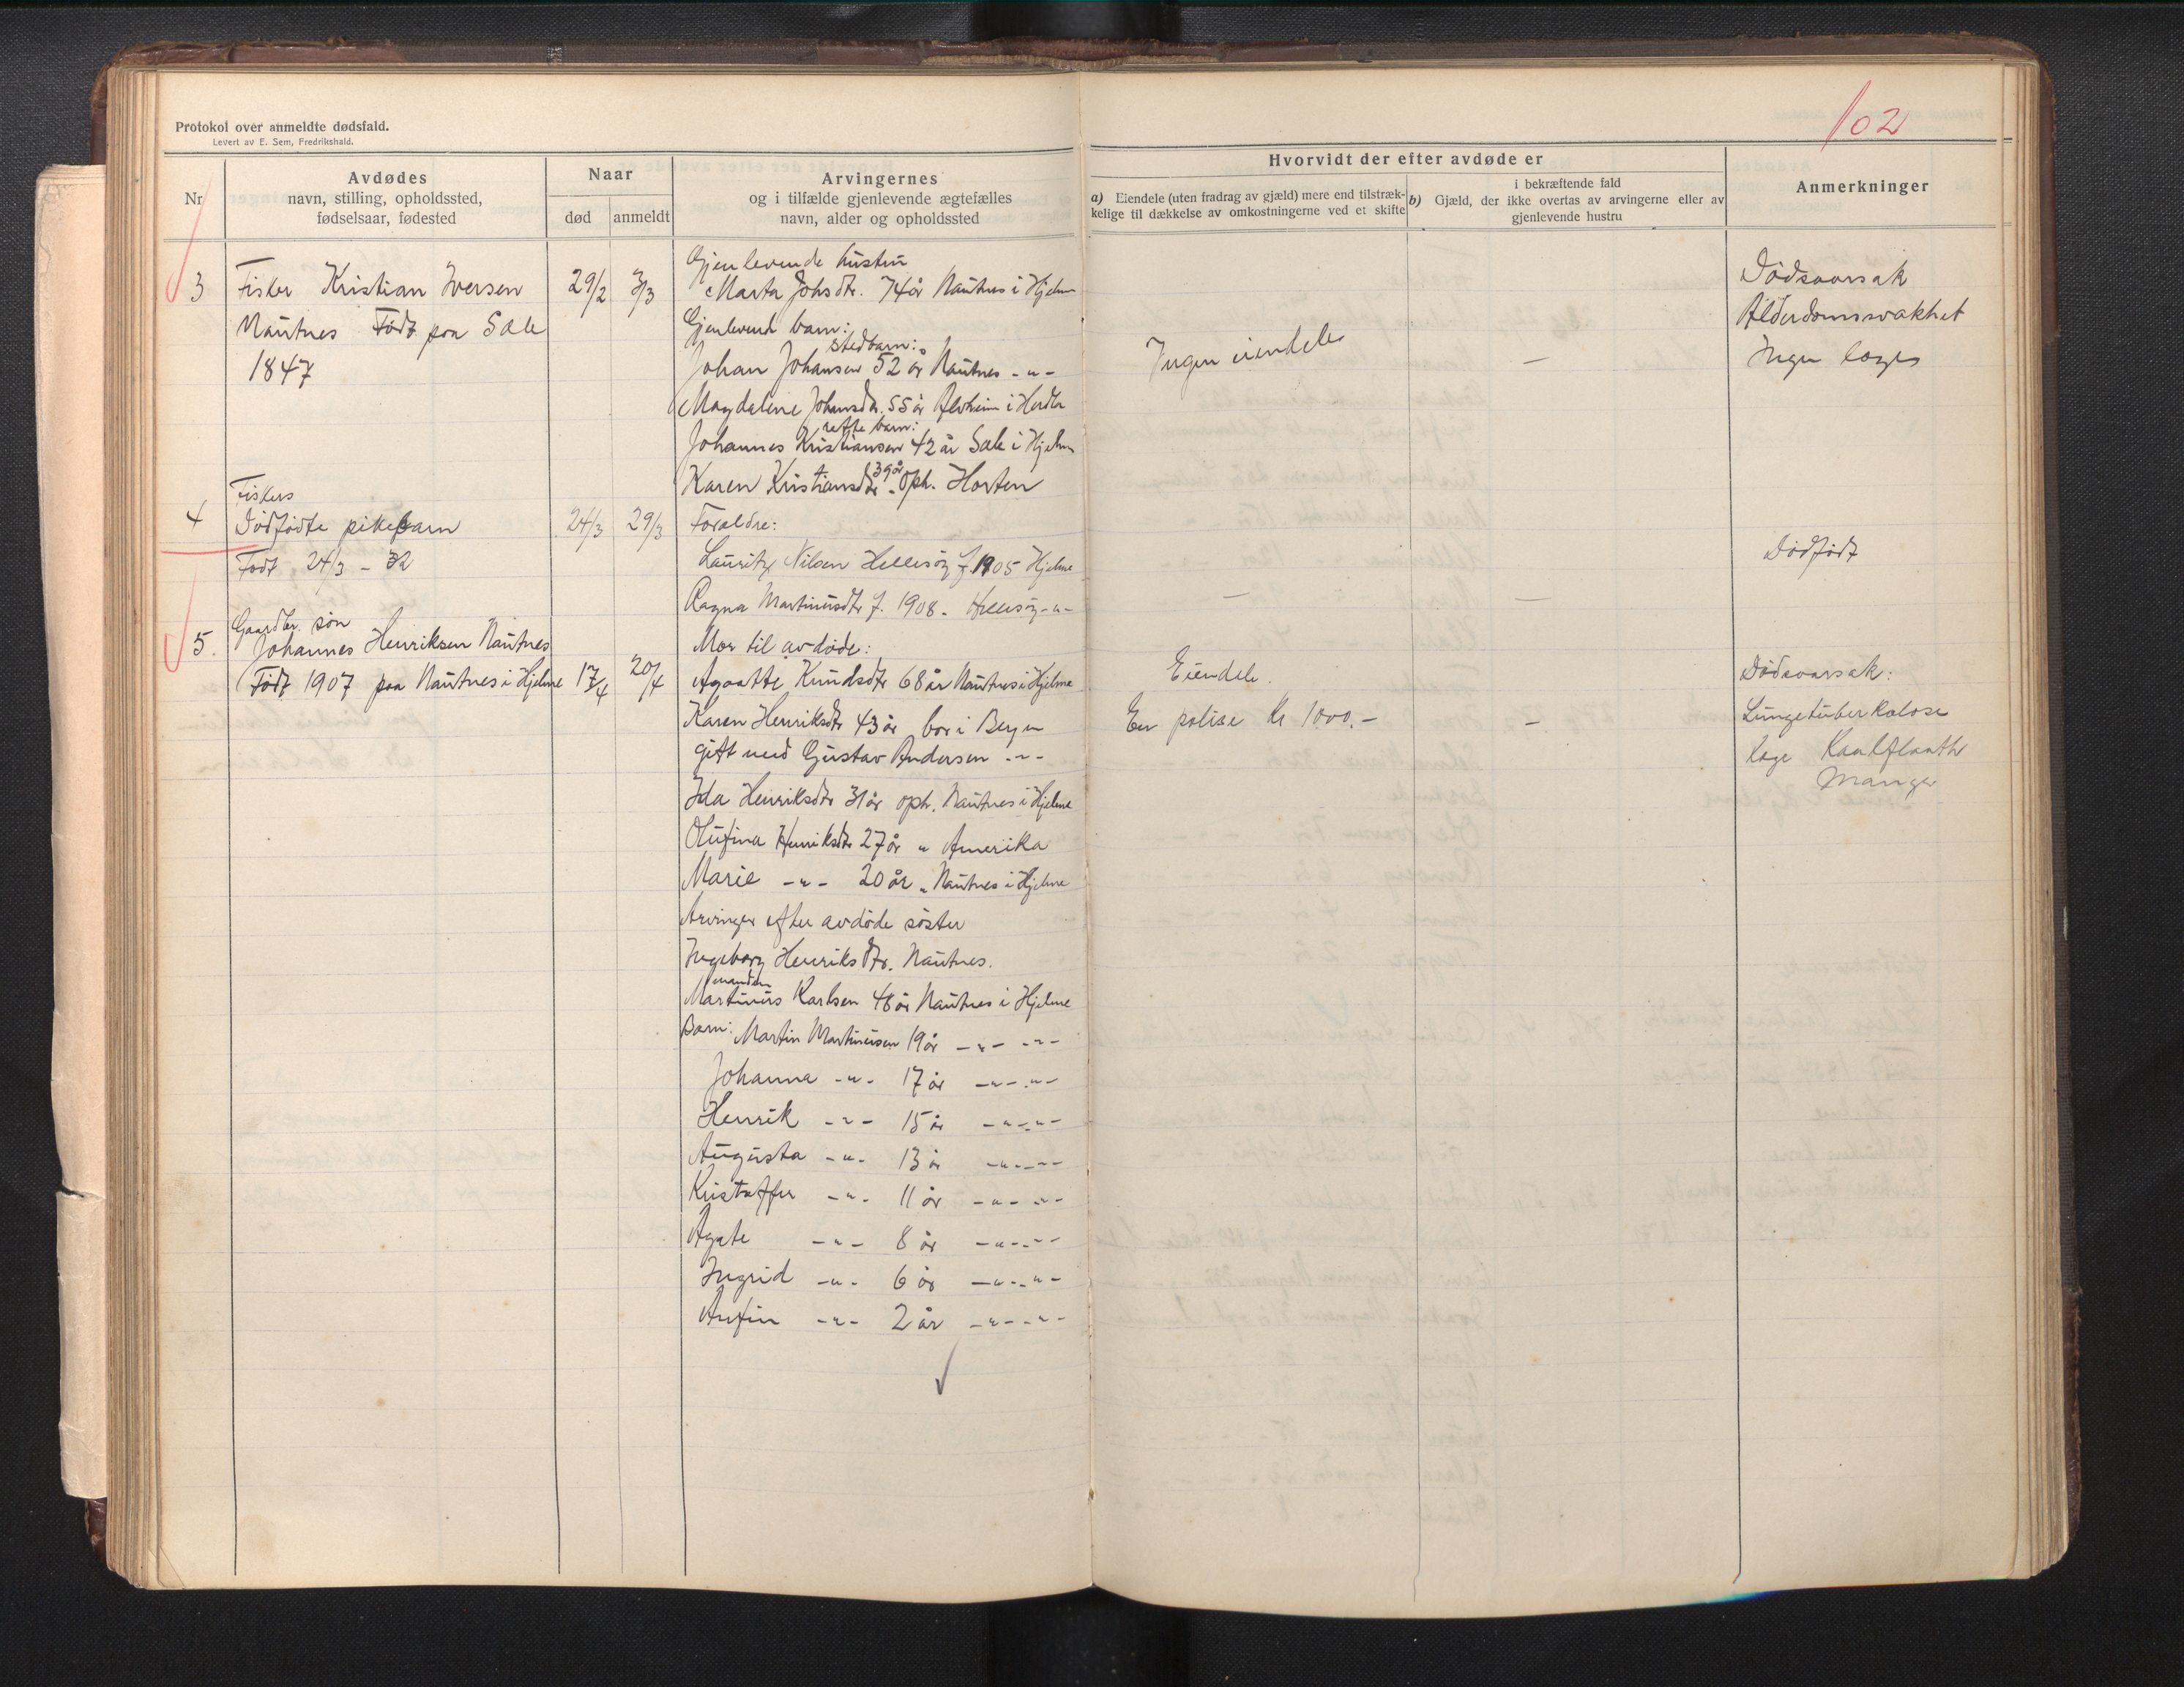 Protokol over anmeldte dødsfald.
Levert av E. Sem, Fredrikshald.
102
Nr
Avdødes
navn, stilling, opholdssted,
fødselsaar, fødested
Naar
død
anmeldt
Arvingernes
og i tilfælde gjenlevende ægtefælles
navn, alder og opholdssted
Hvorvidt der efter avdøde er
a) Eiendele (uten fradrag av gjæld) mere end tilstræk-
kelige til dækkelse av omkostningerne ved et skifte
i bekræftende fald
b) Gjæld, der ikke overtas av arvingerne eller av
gjenlevende hustru
Anmerkninger
3
Fisker Kristian Iversen
Nautnes Født paa Sæle
1847
29/2
3/3
Gjenlevende hustru
Marta Johsdtr. 74 år Nautnes i Hjelme
Gjenlevende barn:
stedbarn:
Johan Johansen 52 år Nautnes -"-
Magdalene Johansdtr. 55 år Alvheim i Herdla
rette barn:
Johannes Kristiansen 42 år Sæle i Hjelme
Karen Kristiansdtr. 39 år oph. Horten
Ingen eiendele
—
Dødsaarsak
Alderdomssvakhet
Ingen læge
4
Fiskers
Dødfødte pikebarn
Født 24/3 - 32
24/3
29/3
Foreldre:
Lauritz Nilsen Hellesøy f. 1905 Hjelme
Ragna Martinusdtr f. 1908. Hellesøy -"-
—
—
Dødfødt
5.
Gaardbr. søn
Johannes Henriksen Nautnes
Født 1907 paa Nautnes i Hjelme
17/4
20/4
Mor til avdøde:
Agaatte Knudsdtr 68 år Nautnes i Hjelme
Karen Henriksdtr 43 år bor i Bergen
gift med Gustav Andersen -"-
Ida Henriksdtr 31 år oph. Nautnes i Hjelme
Olufina Henriksdtr 27 år " Amerika
Marie -"- 20 år " Nautnes i Hjelme
Arvinger efter avdøde søster
Ingeborg Henriksdtr. Nautnes.
manden
Martinus Karlsen 48 år Nautnes i Hjelme
Barn: Martin Martinusen 19 år -"- -"-
Johanna -"- 17 år -"- -"-
Henrik -"- 15 år -"- -"-
Augusta -"- 13 år -"- -"-
Kristoffer -"- 11 år -"- -"-
Agate -"- 8 år -"- -"-
Ingrid -"- 6 år -"- -"-
Anfin -"- 2 år -"- -"-
Eiendele.
En polise kr 1000.-
—
Dødsaarsak:
Lungetuberkolose
Læge
Manger